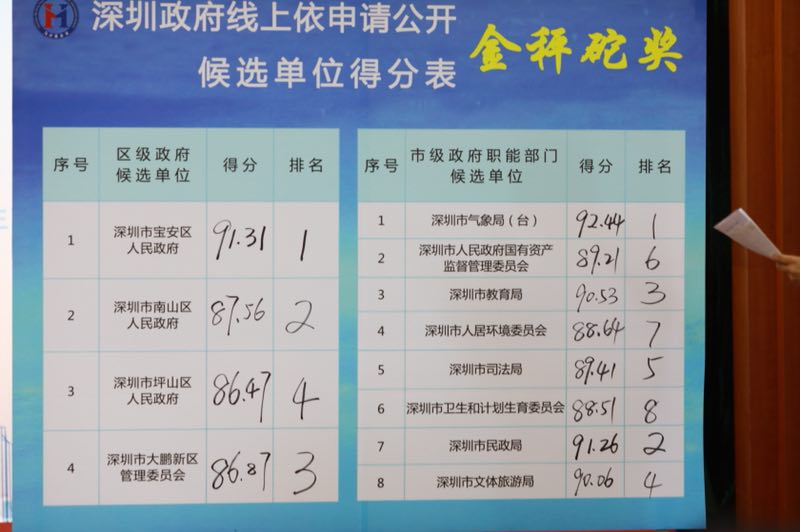 深圳政府线上依申请公开
候选单位得分表
金秤砣奖
序号 区级政府候选单位 得分 排名
1 深圳市宝安区人民政府 91.31 1
2 深圳市南山区人民政府 87.56 2
3 深圳市坪山区人民政府 86.47 4
4 深圳市大鹏新区管理委员会 86.87 3
序号 市级政府职能部门候选单位 得分 排名
1 深圳市气象局(台) 92.44 1
2 深圳市人民政府国有资产监督管理委员会 89.21 6
3 深圳市教育局 90.53 3
4 深圳市人居环境委员会 88.64 7
5 深圳市司法局 89.41 5
6 深圳市卫生和计划生育委员会 88.51 8
7 深圳市民政局 91.26 2
8 深圳市文体旅游局 90.06 4